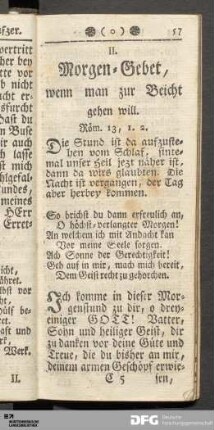 ufzer.
( o )
57
II.
Morgen-Gebet,
wenn man zur Beicht
gehen will.
Röm. 13, 1. 2.
Die Stund ist da aufzuste-
hen vom Schlaf, sinte-
mal unser Heil jezt näher ist,
dann da wirs glaubten. Die
Nacht ist vergangen, der Tag
aber herbey kommen.
So brichst du dann erfreulich an,
O höchst-verlangter Morgen!
An welchem ich mit Andacht kan
Vor meine Seele sorgen.
Ach Sonne der Gerechtigkeit!
Geb auf in mir, mach mich bereit,
Dem Geist recht zu gehorchen.
Ich komme in dieser Mor-
genstund zu dir, o drey-
einiger GOTT! Vatter,
Sohn und heiliger Geist, dir
zu danken vor deine Güte und
Treue, die du bisher an mir,
deinem armen Geschöpf erwie-
C 5
sen,
vertritt
her bey
tte vor
b nicht
cht er-
sfurcht
hast du
n Buse
ir auch
lasse
mich
meines
HErr
Errett-
Werk.
II.
DFG
Deutsche
Forschungsgemeinschaft